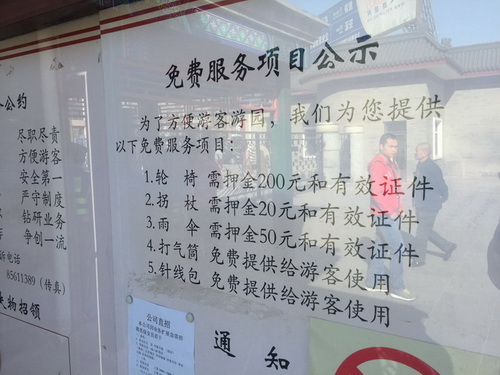 公约
尽职尽责
方便游客
安全第一
严守制度
钻研业务
争创一流
诉电话
85611389(传真)
失物招领
免费服务项目公示
为了方便游客游园，我们为您提供
以下免费服务项目：
1.轮 椅 需押金200元和有效证件
2.拐 杖 需押金20元和有效证件
3.雨 伞 需押金50元和有效证件
4.打气筒 免费提供给游客使用
5.针线包 免费提供给游客使用
公司直招
通 知